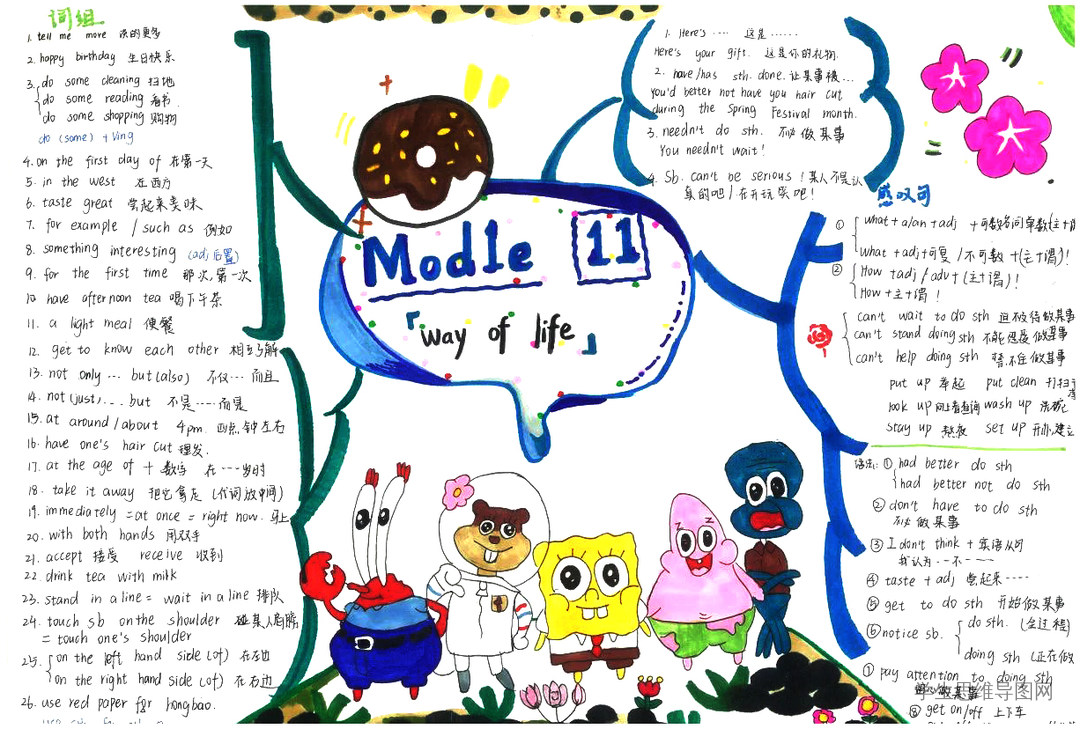 词组
1. tell me more 说的更多
2. happy birthday 生日快乐
3. do some cleaning 扫地
do some reading 看书
do some shopping 购物
do (some) + Ving
4. on the first day of 在第一天
5. in the west 在西方
6. taste great 尝起来美味
7. for example / such as 例如
8. something interesting (adj后置)
9. for the first time 那次,第一次
10. have afternoon tea 喝下午茶
11. a light meal 便餐
12. get to know each other 相互了解
13. not only … but (also) 不仅…而且
14. not (just) … but 不是……而是
15. at around / about 4pm. 四点钟左右
16. have one's hair cut 理发.
17. at the age of + 数字 在…岁时
18. take it away 把它拿走 (代词放中间)
19. immediately = at once = right now. 马上
20. with both hands 用双手
21. accept 接受 receive 收到
22. drink tea with milk
23. stand in a line = wait in a line 排队
24. touch sb on the shoulder 碰某人肩膀
= touch one's shoulder
25. on the left hand side (of) 在左边
on the right hand side (of) 在右边
26. use red paper for hongbao.
Modle 11
「way of life」
1. Here's …… 这是……
Here's your gift. 这是你的礼物.
2. have/has sth. done. 让某事被…
you'd better not have you hair cut
during the Spring Festival month.
3. needn't do sth. 不必做某事
You needn't wait!
4. Sb. can't be serious! 某人不是认
真的吧/在开玩笑吧!
感叹句
① what + a/an + adj + 可数名词单数(主+谓
what + adj + 可复 / 不可数 + (主+谓)!
② How + adj / adv + (主+谓)!
How + 主 + 谓!
can't wait to do sth 迫不及待做某事
can't stand doing sth 不能忍受做某事
can't help doing sth 禁不住做某事
put up 举起 put clean 打扫
look up 向上看,查询 wash up 洗碗
stay up 熬夜 set up 开办,建立
语法: ① had better do sth
had better not do sth
② don't have to do sth
不必做某事
③ I don't think + 宾语从句
我认为…不……
④ taste + adj 尝起来……
⑤ get to do sth 开始做某事
⑥ notice sb. do sth. (全过程)
doing sth (正在做
⑦ pay attention to doing sth
学生思维导图网
⑧ get on/off 上下车